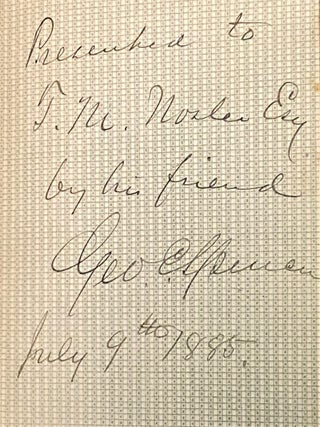 Presented to
T. M. Nosler Esq
by his friend
Geo. E. Spencer
July 9th 1885.